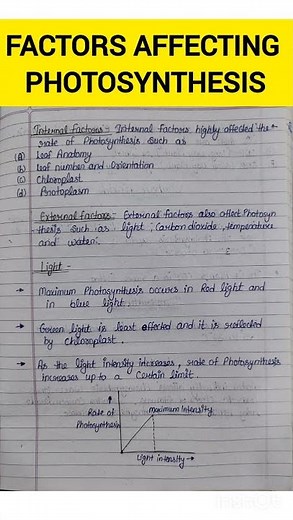 FACTORS AFFECTING
PHOTOSYNTHESIS
Internal factors - Internal factors highly affected the
rate of Photosynthesis such as
(a) Leaf Anatomy
(b) leaf number and Orientation
(c) Chloroplast
(d) Protoplasm
External factors - External factors also affect Photosyn
thesis such as light, Carbondioxide, temperature
and water.
Light -
→ Maximum Photosynthesis occurs in Red light and
in blue light.
→ Green light is least effected and it is reflected
by chloroplast.
→ As the light intensity increases, rate of Photosynthesis
increases up to a Certain limit.
Rate of
Photosynthesis
Maximum intensity
Light intensity →